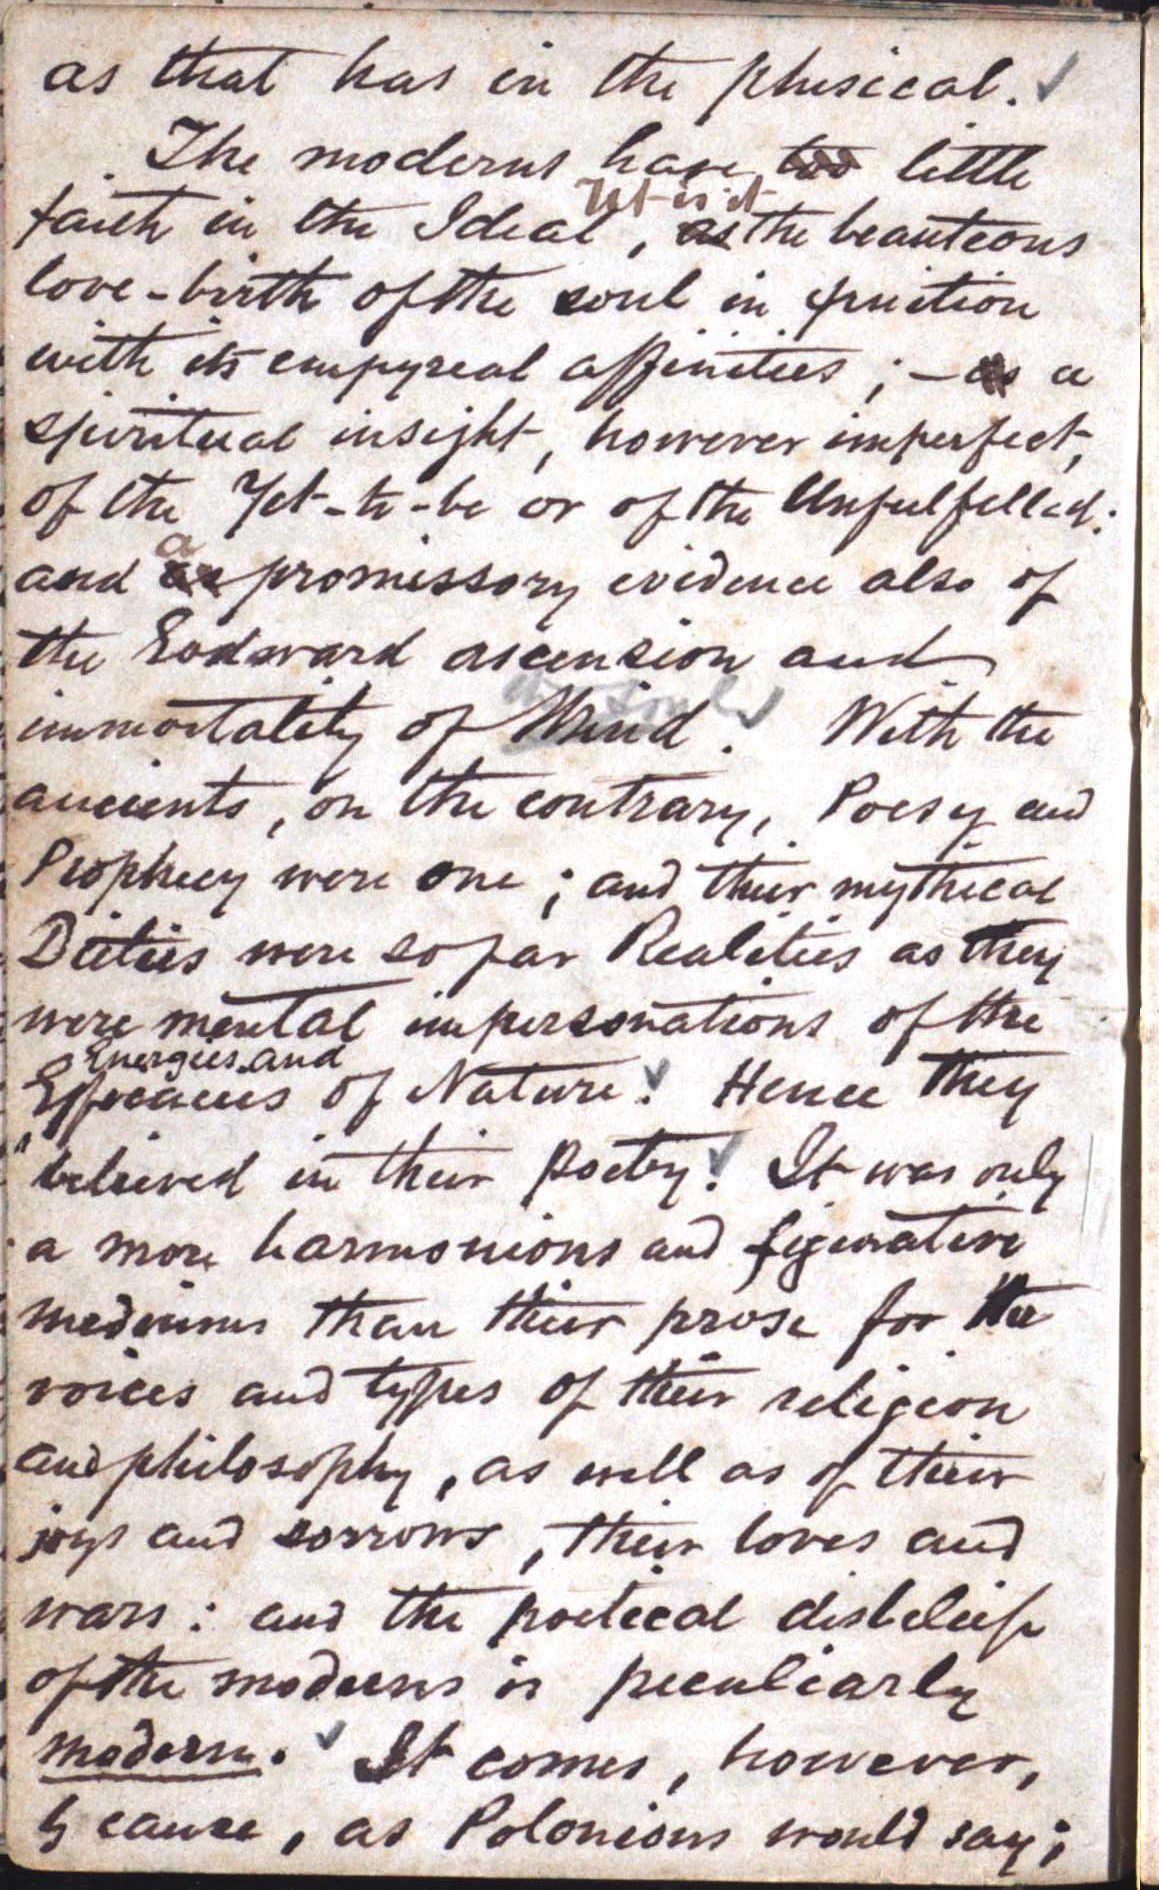 as that has in the phisical.
The moderns have too little
Yet is it
faith in the Ideal, as the beauteous
love-birth of the soul in fruition
with its empyreal affinities; – as a
spiritual insight, however imperfect,
of the Yet-to-be or of the Unfulfilled:
a
and as promissory evidence also of
the Godward ascension and
the Soul
immortality of Mind. With the
ancients, on the contrary, Poesy and
Prophecy were one; and their mythical
Dieties were so far Realities as they
were mental impersonations of the
Energies and
Efficacies of Nature. Hence they
believed in their poetry! It was only
a more harmonious and figurative
mediums than their prose for the
voices and types of their religion
and philosophy, as well as of their
joys and sorrows, their loves and
wars: and the poetical disbelief
of the moderns is peculiarly
modern. It comes, however,
by cause, as Polonious would say;